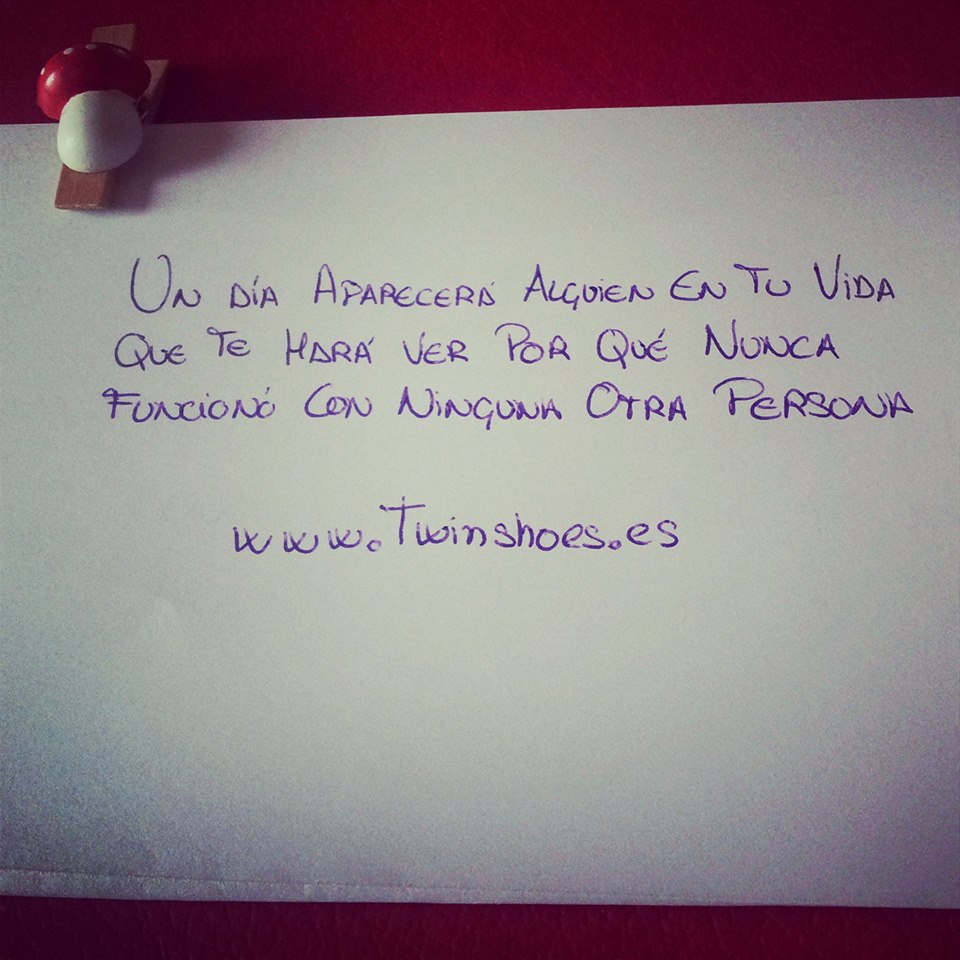 Un día Aparecerá Alguien En Tu Vida
Que Te Hará Ver Por Qué Nunca
Funcionó Con Ninguna Otra Persona
www.Twinshoes.es